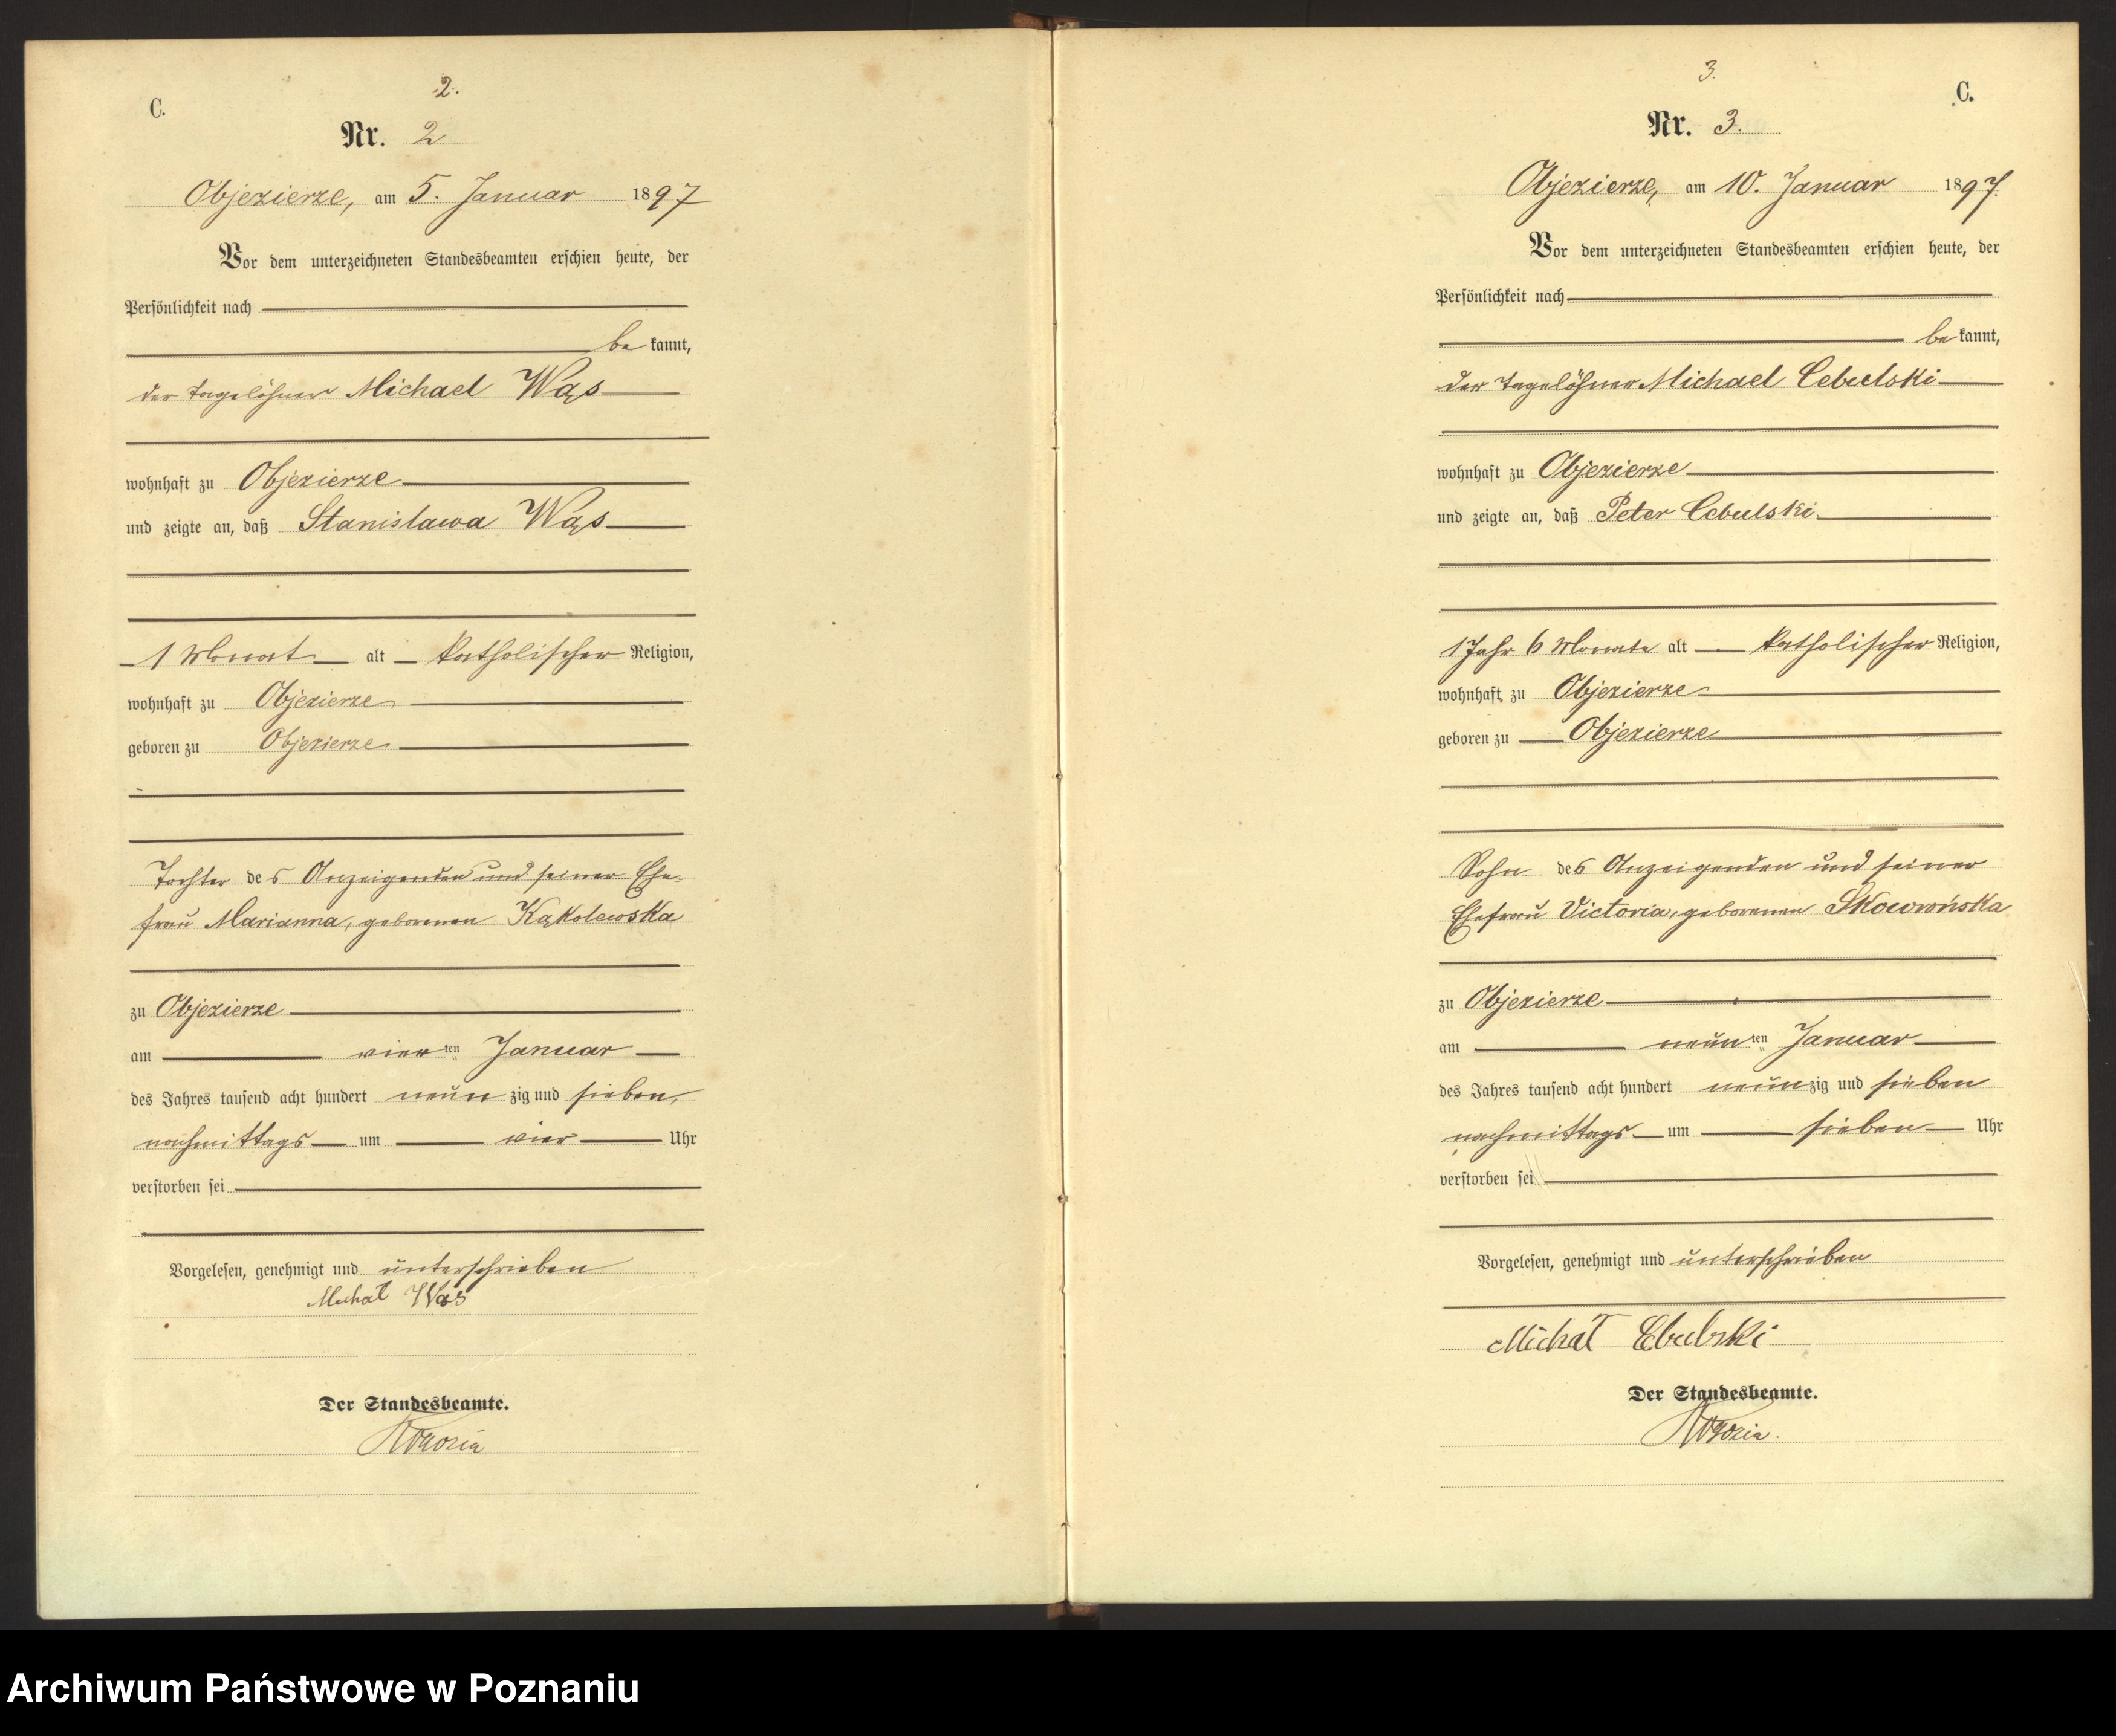 2.
C.
Nr. 2
Objezierze, am 5. Januar 1897
Vor dem unterzeichneten Standesbeamten erschien heute, der
Persönlichkeit nach
be kannt,
der Tagelöhner Michael Wąs
wohnhaft zu Objezierze
und zeigte an, daß Stanislawa Wąs
1 Monat alt katholischer Religion,
wohnhaft zu Objezierze
geboren zu Objezierze
Tochter des Anzeigenden und seiner Ehe-
frau Marianna, geborenen Kąkolewska
zu Objezierze
am vier ten Januar
des Jahres tausend acht hundert neun zig und sieben,
nachmittags um vier Uhr
verstorben sei
Vorgelesen, genehmigt und unterschrieben
Michał Wąs
Der Standesbeamte.
3.
C.
Nr. 3.
Objezierze, am 10. Januar 1897.
Vor dem unterzeichneten Standesbeamten erschien heute, der
Persönlichkeit nach
be kannt,
der Tagelöhner Michael Cebulski
wohnhaft zu Objezierze
und zeigte an, daß Peter Cebulski
1 Jahr 6 Monate alt katholischer Religion,
wohnhaft zu Objezierze
geboren zu Objezierze
Sohn des Anzeigenden und seiner
Ehefrau Victoria, geborenen Skowrońska
zu Objezierze
am neun ten Januar
des Jahres tausend acht hundert neun zig und sieben
nachmittags um sieben Uhr
verstorben sei
Vorgelesen, genehmigt und unterschrieben
Michał Cebulski
Der Standesbeamte.
Archiwum Państwowe w Poznaniu